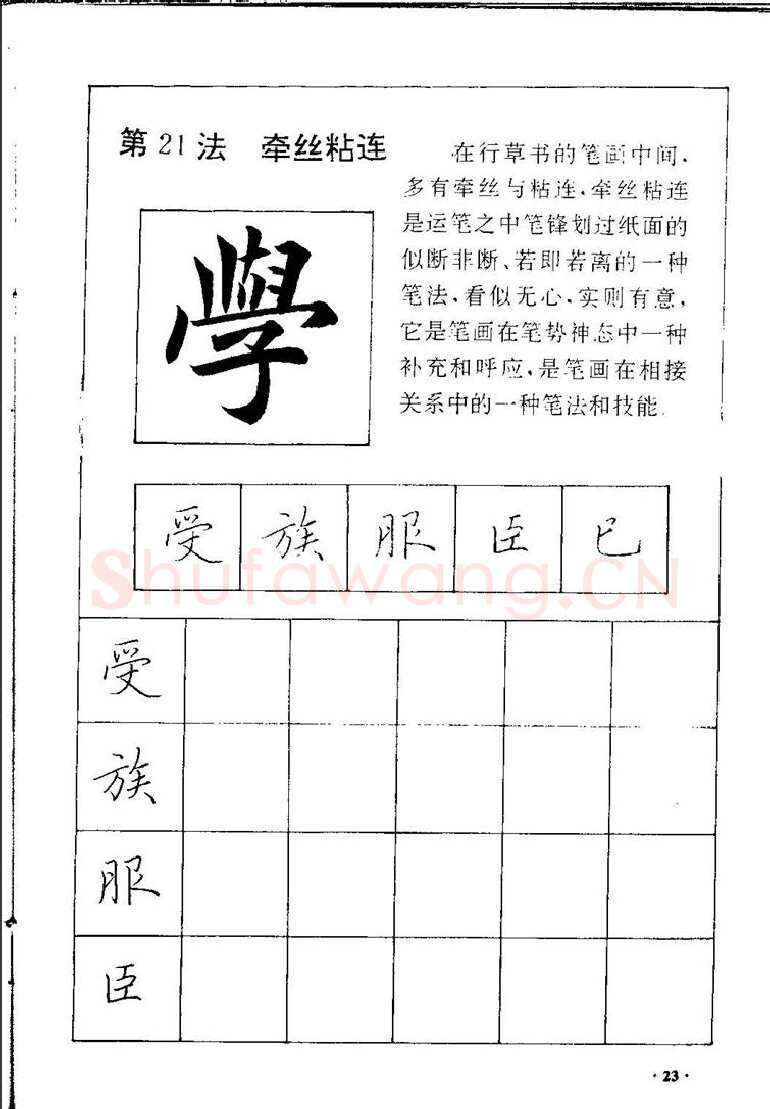 第21法 牵丝粘连
在行草书的笔画中间，
多有牵丝与粘连，牵丝粘连
是运笔之中笔锋划过纸面的
似断非断、若即若离的一种
笔法，看似无心，实则有意，
它是笔画在笔势神态中一种
补充和呼应，是笔画在相接
关系中的一种笔法和技能.
學
受 族 服 臣 已
Shufawang.CN
受
族
服
臣
·23·